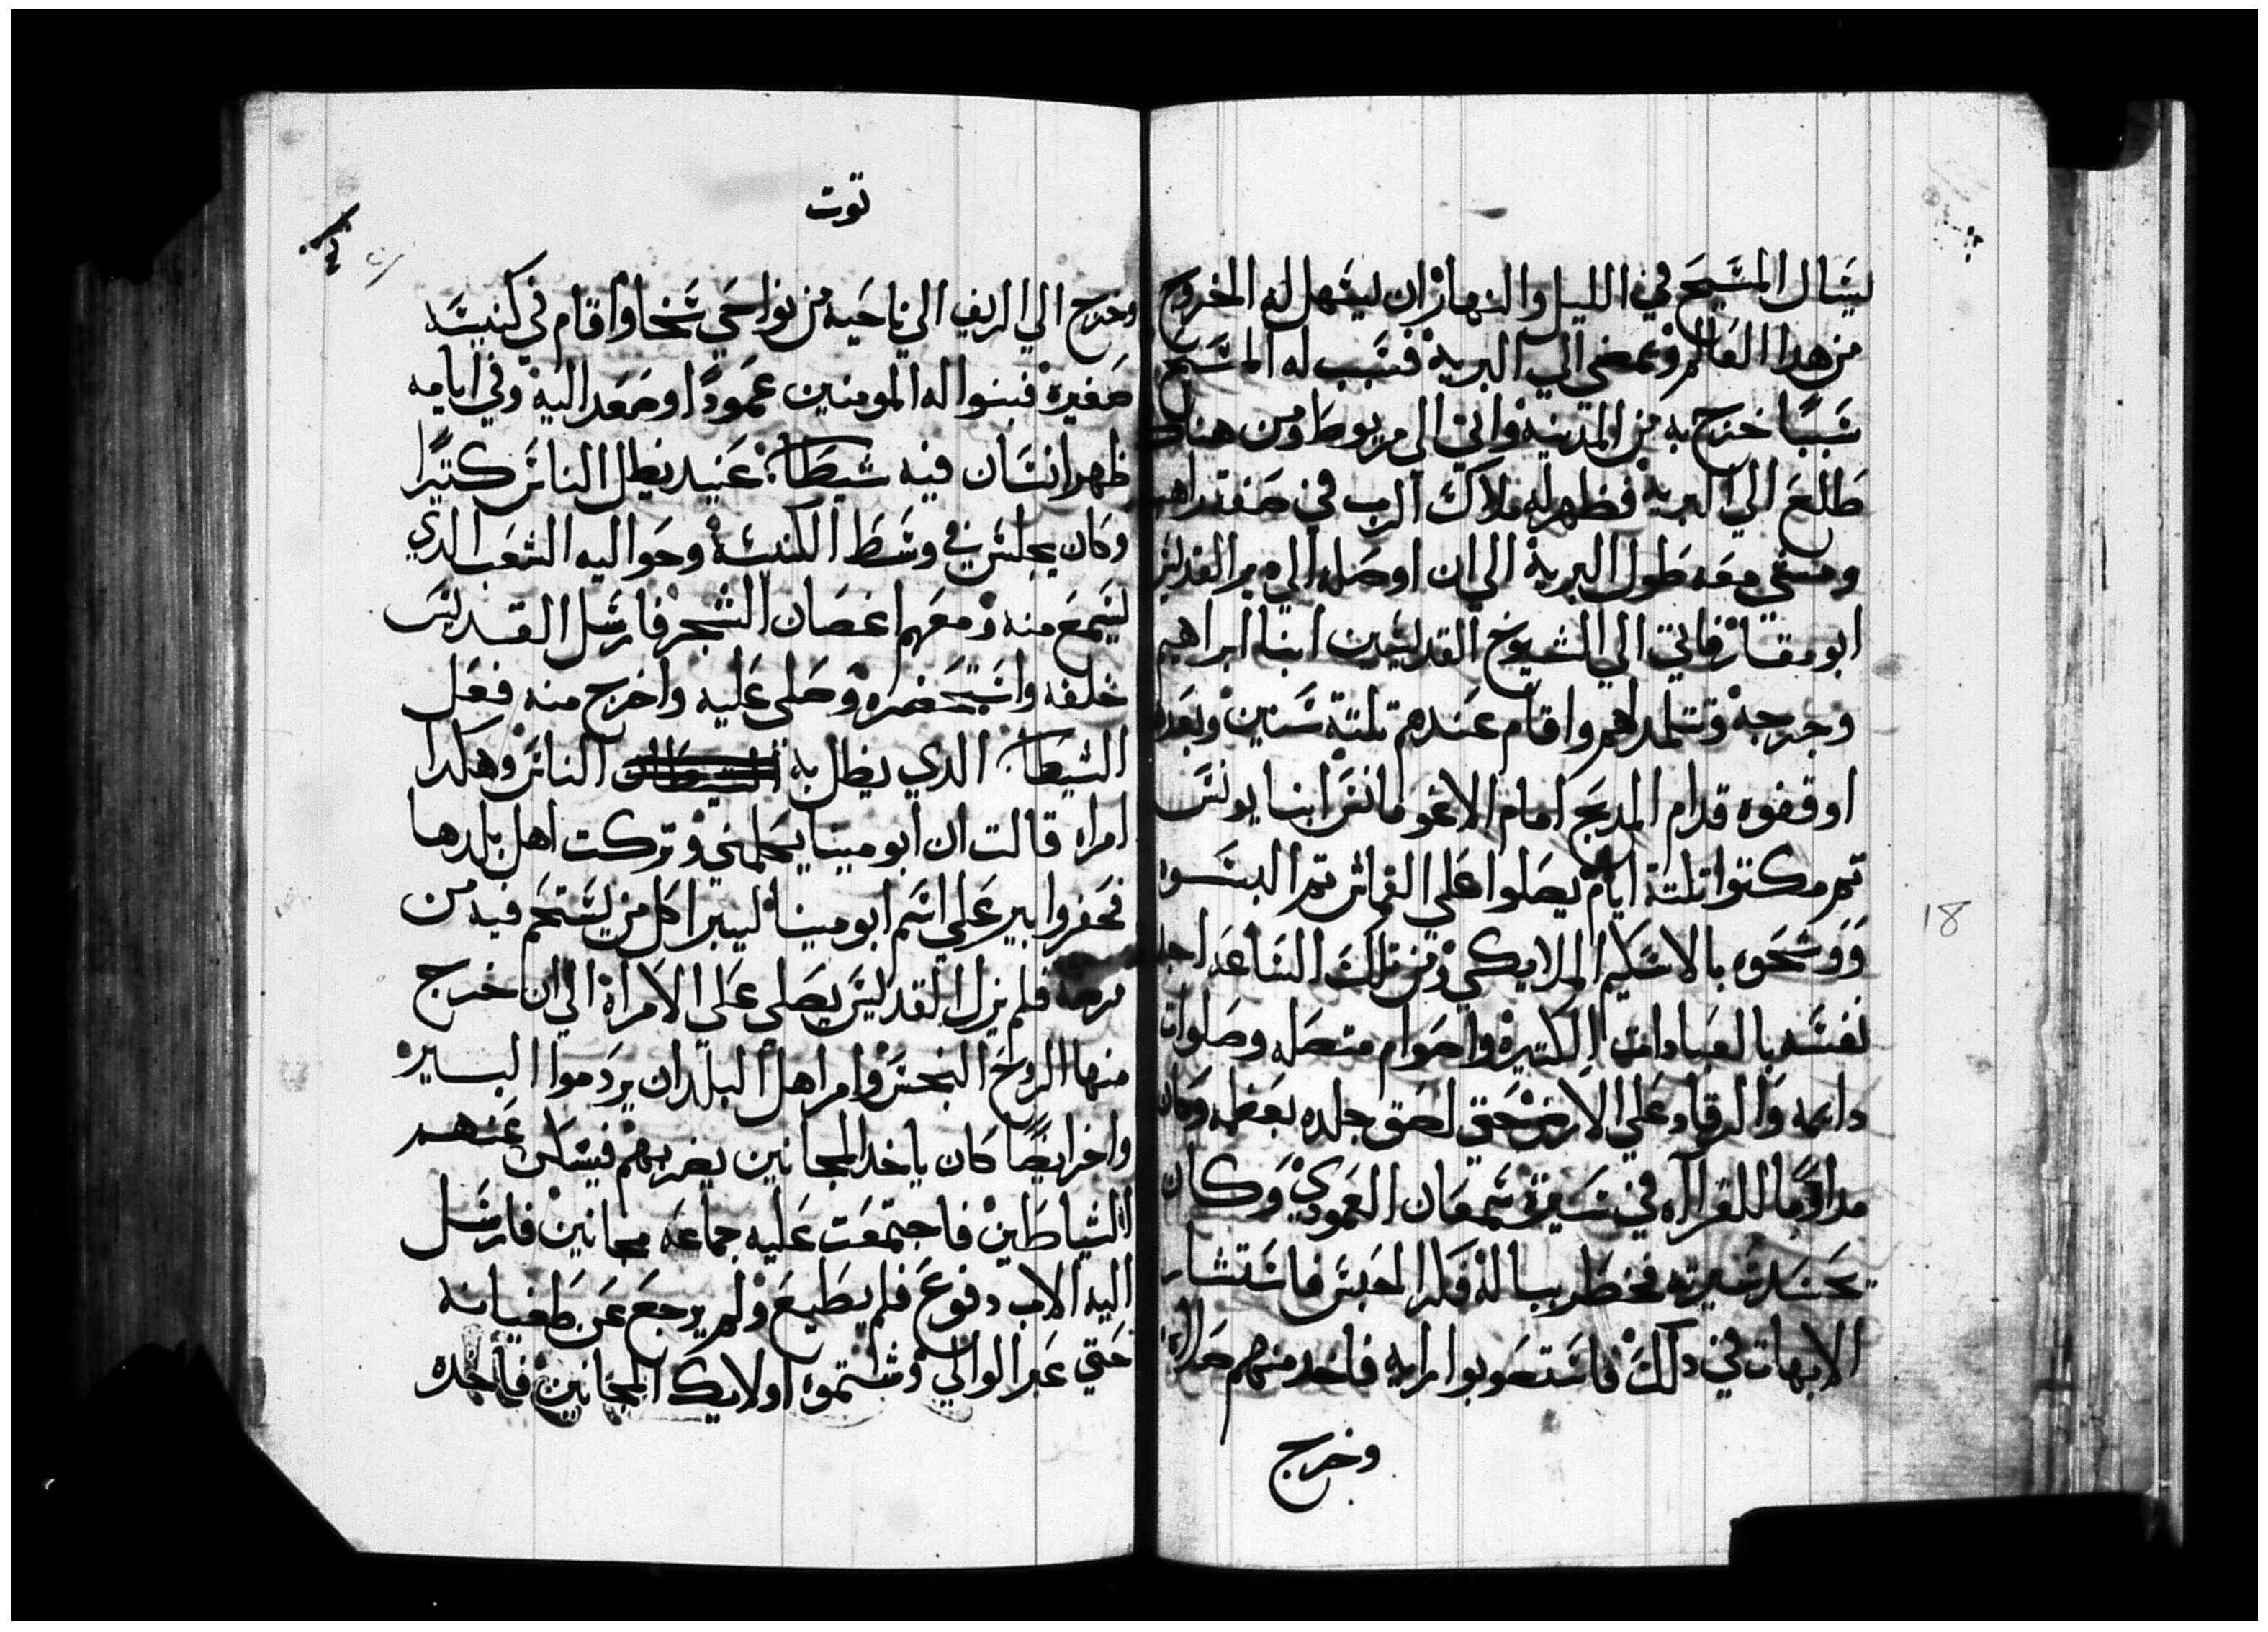 يسال المسيح في الليل والنهار ان يسهل له الخروج
من هدا العالم ويمضي الي البرية فسبب له المسيح
سببًا خرج به من المدينة واتي الي مريوط ومن هناك
طلع الي البرية فظهر له ملاك الرب في صفة راهب
ومشي معه طول البرية الي ان اوصله الي دير القديس
ابو مقار فاتي الي الشيوخ القديسين انبا ابراهيم
وجرجه وتتلمد لهم واقام عندهم تلتة سنين وبعدها
اوقفوه قدام المدبح امام الاغومانس انبا يونس
تم مكتوا تلتة ايام يصلوا علي القماش تم البسوه
ووشحوه بالاسكيم الملايكي ومن تلك الساعه اجهد
نفسه بالعبادات الكتيرة واصوام متصله وصلوات
دايمه والرقاد علي الارض حتي لصق جلده بعظمه وكان
مداومًا للقراله في سيرة سمعان العمودي وكان
يحسد سيرته فخطر بباله فكر الحبس فاستشار
الابهات في دلك فاستصوبوا رايه فاخد منهم صلاة
وخرج
18
توت
وخرج الي الريف الي ناحيه من نواحي سخا واقام في كنيسه
صغيرة فبنوا له المومنين عمودًا وصعد اليه وفي ايامه
ظهر انسان فيه شيطان عنيد يظل الناس كتيرًا
وكان يجلس في وسط الكنيسة وحواليه الشعب الدي
ليسمع منه ومعهم اغصان الشجر فارسل القديس
خلفه واستحضره وصلي عليه واخرج منه فعل
الشيطان الدي يظل به الناس وهكدا
امراه قالت ان ابو مينا يكلمني وتركت اهل بلدها
فحفروا بير علي اسم ابو مينا ليبرا كل من يستحم فيه من
مرضه فلم يزل القديس يصلي علي الامراة الي ان خرج
منها الروح النجس وامر اهل البلد ان يردموا البير
واخر ايضًا كان ياخد المجانين يضربهم فيسكن عنهم
الشياطين فاجتمعت عليه جماعه مجانين فارسل
اليه الاب دفوع فلم يطيع ولم يرجع عن طغيانه
حتي عبر الوالي وشتموه اولايك المجانين فاخده